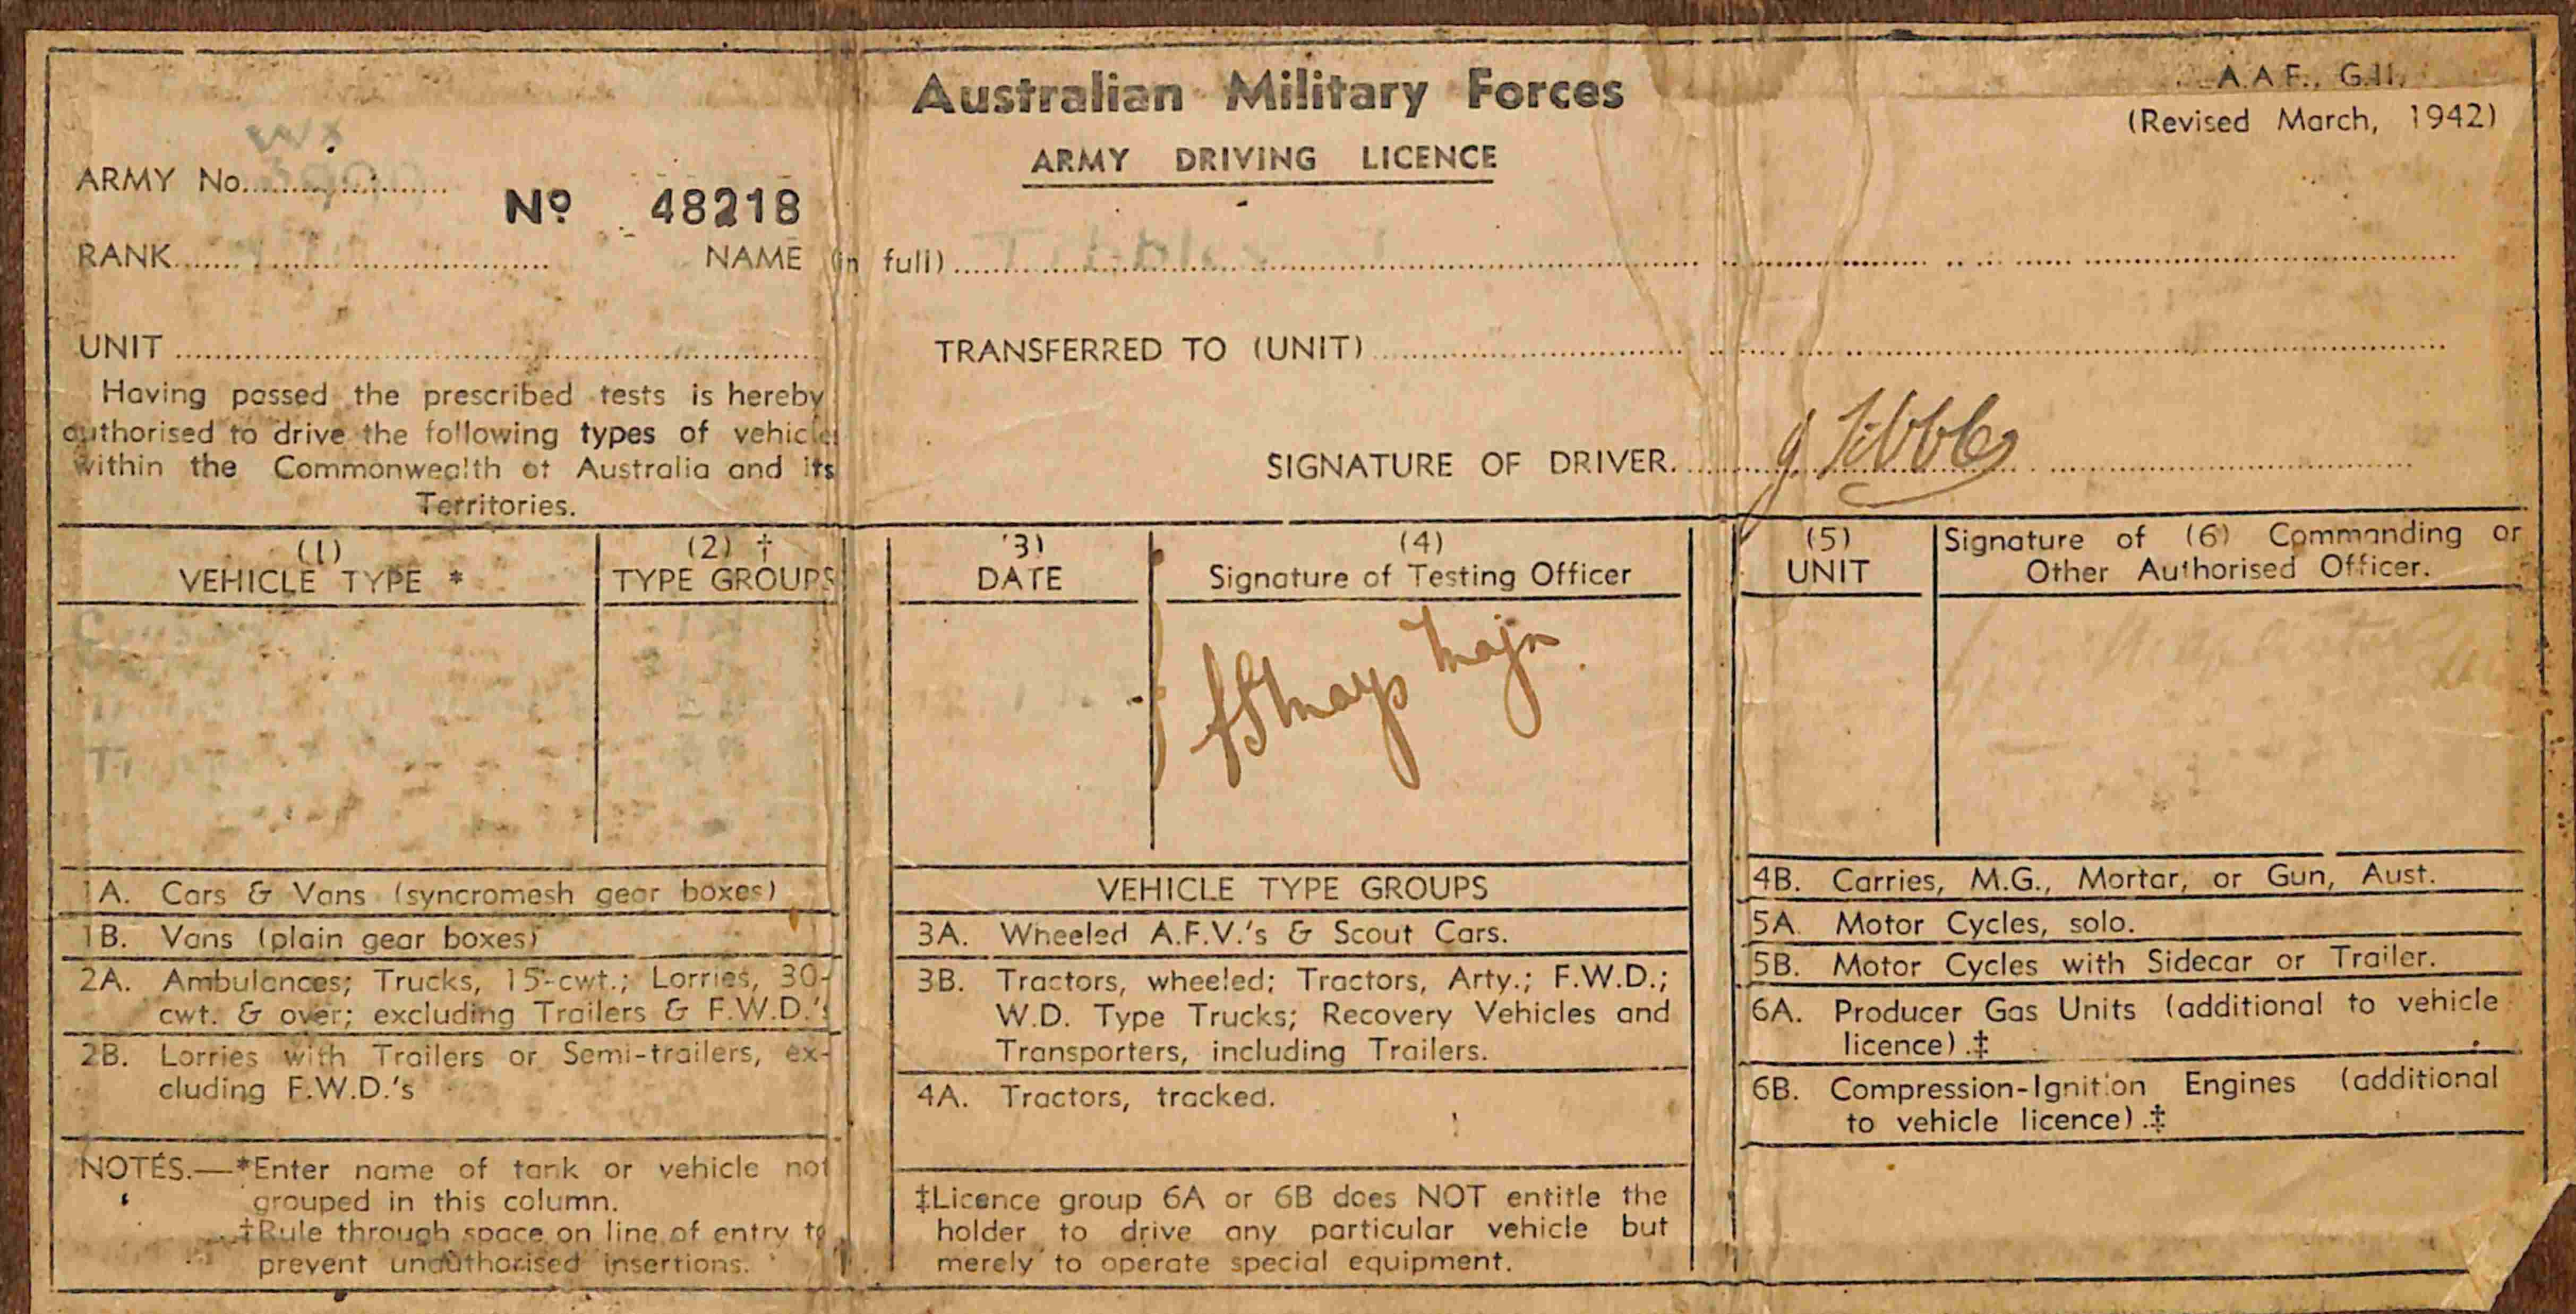 Australian Military Forces
A.A.F., G.11.
(Revised March, 1942)
ARMY DRIVING LICENCE
WX
ARMY No.
No 48218
RANK
NAME (in full)
UNIT
TRANSFERRED TO (UNIT)
Having passed the prescribed tests is hereby
authorised to drive the following types of vehicles
within the Commonwealth of Australia and its
Territories.
SIGNATURE OF DRIVER. J Tibbles
(1)
VEHICLE TYPE *
(2) †
TYPE GROUPS
(3)
DATE
(4)
Signature of Testing Officer
(5)
UNIT
Signature of (6) Commanding or
Other Authorised Officer.
Major
1A. Cars & Vans (syncromesh gear boxes)
1B. Vans (plain gear boxes)
2A. Ambulances; Trucks, 15-cwt.; Lorries, 30-
cwt. & over; excluding Trailers & F.W.D.'s
2B. Lorries with Trailers or Semi-trailers, ex-
cluding F.W.D.'s
NOTES.—*Enter name of tank or vehicle not
grouped in this column.
†Rule through space on line of entry to
prevent unauthorised insertions.
VEHICLE TYPE GROUPS
3A. Wheeled A.F.V.'s & Scout Cars.
3B. Tractors, wheeled; Tractors, Arty.; F.W.D.;
W.D. Type Trucks; Recovery Vehicles and
Transporters, including Trailers.
4A. Tractors, tracked.
‡Licence group 6A or 6B does NOT entitle the
holder to drive any particular vehicle but
merely to operate special equipment.
4B. Carries, M.G., Mortar, or Gun, Aust.
5A. Motor Cycles, solo.
5B. Motor Cycles with Sidecar or Trailer.
6A. Producer Gas Units (additional to vehicle
licence).‡
6B. Compression-Ignition Engines (additional
to vehicle licence).‡